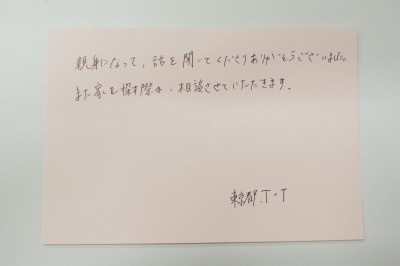 親身になって、話を聞いてくださりありがとうございました。
また家を探す際は、相談させていただきます。
東京都.T・T